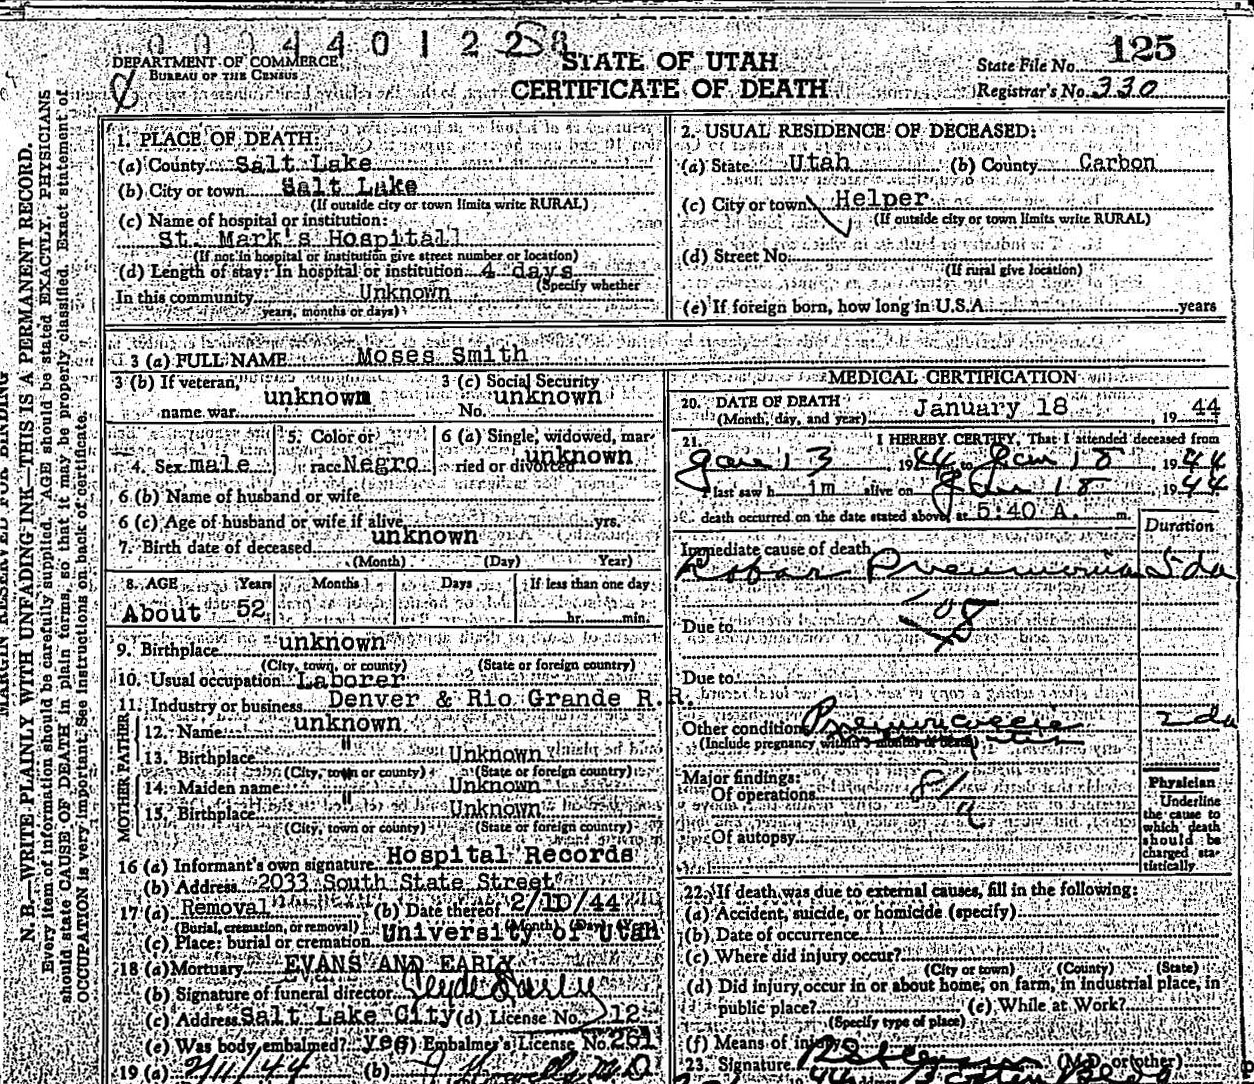 000440122 8
DEPARTMENT OF COMMERCE
BUREAU OF THE CENSUS
STATE OF UTAH
CERTIFICATE OF DEATH
State File No. 125
Registrar's No. 330
MARGIN RESERVED FOR BINDING
N. B.—WRITE PLAINLY WITH UNFADING INK—THIS IS A PERMANENT RECORD.
Every item of information should be carefully supplied. AGE should be stated EXACTLY. PHYSICIANS
should state CAUSE OF DEATH in plain forms, so that it may be properly classified. Exact statement of
OCCUPATION is very important. See instructions on back of certificate.
1. PLACE OF DEATH:
(a) County Salt Lake
(b) City or town Salt Lake
(If outside city or town limits write RURAL)
(c) Name of hospital or institution:
St. Mark's Hospitall
(If not in hospital or institution give street number or location)
(d) Length of stay: In hospital or institution 4 days
(Specify whether
In this community Unknown
years, months or days)
2. USUAL RESIDENCE OF DECEASED:
(a) State Utah (b) County Carbon
(c) City or town Helper
(If outside city or town limits write RURAL)
(d) Street No.
(If rural give location)
(e) If foreign born, how long in U.S.A. years
3 (a) FULL NAME Moses Smith
3 (b) If veteran, name war unknown
3 (c) Social Security No. unknown
4. Sex male
5. Color or race Negro
6 (a) Single, widowed, married or divorced unknown
6 (b) Name of husband or wife
6 (c) Age of husband or wife if alive yrs.
7. Birth date of deceased unknown
(Month) (Day) Year)
8. AGE Years Months Days If less than one day
About 52 hr. min.
9. Birthplace unknown
(City, town, or county) (State or foreign country)
10. Usual occupation Laborer
11. Industry or business Denver & Rio Grande R.R.
FATHER
12. Name unknown
13. Birthplace " Unknown
(City, town or county) (State or foreign country)
MOTHER
14. Maiden name " Unknown
15. Birthplace " Unknown
(City, town or county) (State or foreign country)
16 (a) Informant's own signature Hospital Records
(b) Address 2033 South State Street
17 (a) Removal (b) Date thereof 2/10/44
(Burial, cremation, or removal) (Month) (Day) (Year)
(c) Place: burial or cremation University of Utah
18 (a) Mortuary EVANS AND EARLY
(b) Signature of funeral director Clyde Early
(c) Address Salt Lake City (d) License No. 12
(e) Was body embalmed? yes (f) Embalmer's License No. 261
19 (a) 2/11/44 (b) M.D.
MEDICAL CERTIFICATION
20. DATE OF DEATH
(Month, day, and year) January 18 19 44
21. I HEREBY CERTIFY, That I attended deceased from
Jan 13 1944 to Jan 18, 1944
I last saw h im alive on Jan 18 1944
death occurred on the date stated above, at 5:40 A. m.
Duration
Immediate cause of death
Lobar Pneumonia 5da
108
Due to
Due to
Other conditions Pneumococcic 2da
(Include pregnancy within 3 months of death)
Major findings:
Of operations 81
a
Of autopsy
Physician
Underline
the cause to
which death
should be
charged sta-
tistically
22. If death was due to external causes, fill in the following:
(a) Accident, suicide, or homicide (specify)
(b) Date of occurrence
(c) Where did injury occur?
(City or town) (County) (State)
(d) Did injury occur in or about home, on farm, in industrial place, in
public place? (e) While at Work?
(Specify type of place)
(f) Means of injury
23. Signature (M.D. or other)